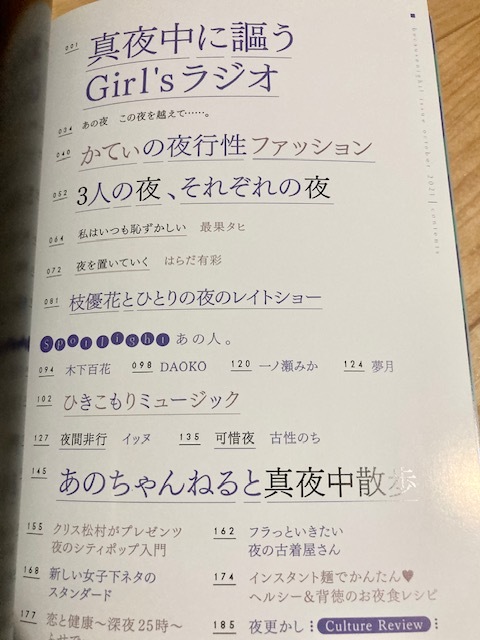 001 真夜中に謳う
Girl'sラジオ
034 あの夜 この夜を越えて……。
040 かてぃの夜行性ファッション
052 3人の夜、それぞれの夜
064 私はいつも恥ずかしい 最果タヒ
072 夜を置いていく はらだ有彩
081 枝優花とひとりの夜のレイトショー
Spotlight あの人。
094 木下百花 098 DAOKO 120 一ノ瀬みか 124 夢月
102 ひきこもりミュージック
127 夜間非行 イッヌ 135 可惜夜 古性のち
145 あのちゃんねると真夜中散歩
155 クリス松村がプレゼンツ
夜のシティポップ入門
162 フラっといきたい
夜の古着屋さん
168 新しい女子下ネタの
スタンダード
174 インスタント麺でかんたん♥
ヘルシー&背徳のお夜食レシピ
177 恋と健康〜深夜25時〜
185 夜更かし Culture Review
2021 contents